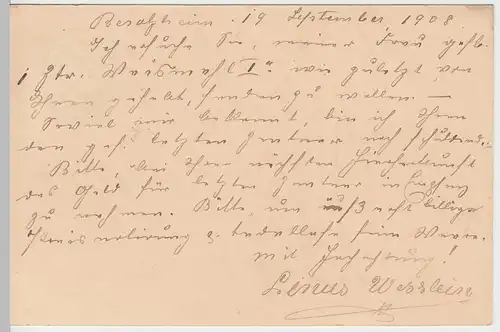 Berolzheim, 19 September 1908.
Ich ersuche Sie, meiner Frau gefl.
1 Ztr. Weissmehl I a wie zuletzt von
Ihnen gehabt, senden zu wollen. —
Soviel mir bekannt, bin ich Ihnen
den gef. letzten Zentner noch schuldend.
Bitte, bei Ihrer nächsten Hierherkunft
das Geld für letzten Zentner in Empfang
zu nehmen. Bitte, um recht billige
Preisnotierung & tadellose feine Ware.
Mit Hochachtung!
Linus Wesslein